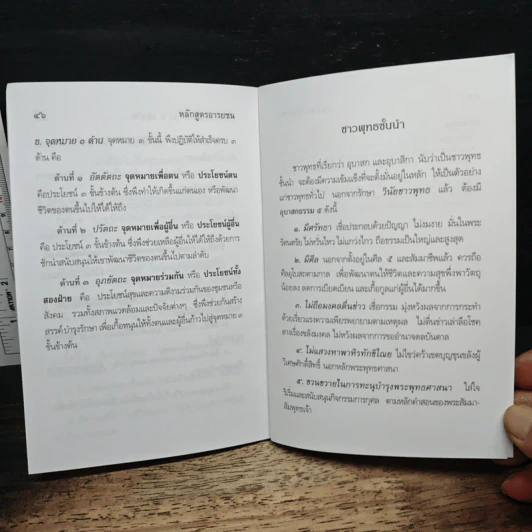 ๔๖ หลักสูตรอารยชน
ข. จุดหมาย ๓ ด้าน จุดหมาย ๓ ขั้นนี้ พึงปฏิบัติให้สำเร็จครบ ๓
ด้าน คือ
ด้านที่ ๑ อัตตัตถะ จุดหมายเพื่อตน หรือ ประโยชน์ตน
คือประโยชน์ ๓ ขั้นข้างต้น ซึ่งพึงทำให้เกิดขึ้นแก่ตนเอง หรือพัฒนา
ชีวิตของตนขึ้นไปให้ได้ให้ถึง
ด้านที่ ๒ ปรัตถะ จุดหมายเพื่อผู้อื่น หรือ ประโยชน์ผู้อื่น
คือ ประโยชน์ ๓ ขั้นข้างต้น ซึ่งพึงช่วยเหลือผู้อื่นให้ได้ให้ถึงด้วยการ
ชักนำสนับสนุนให้เขาพัฒนาชีวิตของตนขึ้นไปตามลำดับ
ด้านที่ ๓ อุภยัตถะ จุดหมายร่วมกัน หรือ ประโยชน์ทั้ง
สองฝ่าย คือ ประโยชน์สุขและความดีงามร่วมกันของชุมชนหรือ
สังคม รวมทั้งสภาพแวดล้อมและปัจจัยต่างๆ ซึ่งพึงช่วยกันสร้าง
สรรค์บำรุงรักษา เพื่อเกื้อหนุนให้ทั้งตนและผู้อื่นก้าวไปสู่จุดหมาย ๓
ขั้นข้างต้น
ชาวพุทธชั้นนำ
ชาวพุทธที่เรียกว่า อุบาสก และอุบาสิกา นับว่าเป็นชาวพุทธ
ชั้นนำ จะต้องมีความเข้มแข็งที่จะตั้งมั่นอยู่ในหลัก ให้เป็นตัวอย่าง
แก่ชาวพุทธทั่วไป นอกจากรักษา วินัยชาวพุทธ แล้ว ต้องมี
อุบาสกธรรม ๕ ดังนี้
๑. มีศรัทธา เชื่อประกอบด้วยปัญญา ไม่งมงาย มั่นในพระ
รัตนตรัย ไม่หวั่นไหว ไม่แกว่งไกว ถือธรรมเป็นใหญ่และสูงสุด
๒. มีศีล นอกจากตั้งอยู่ในศีล ๕ และสัมมาชีพแล้ว ควรถือ
ศีลอุโบสถตามกาล เพื่อพัฒนาตนให้ชีวิตและความสุขพึ่งพาวัตถุ
น้อยลง ลดการเบียดเบียน และเกื้อกูลแก่ผู้อื่นได้มากขึ้น
๓. ไม่ถือมงคลตื่นข่าว เชื่อกรรม มุ่งหวังผลจากการกระทำ
ด้วยเรี่ยวแรงความเพียรพยายามตามเหตุผล ไม่ตื่นข่าวเล่าลือโชค
ลางเรื่องขลังมงคล ไม่หวังผลจากการขออำนาจดลบันดาล
๔. ไม่แสวงหาพาหิรทักขิไณย์ ไม่ไขว่คว้าเขตบุญขุนขลังผู้
วิเศษศักดิ์สิทธิ์ นอกหลักพระพุทธศาสนา
๕. ขวนขวายในการทะนุบำรุงพระพุทธศาสนา ใส่ใจ
ริเริ่มและสนับสนุนกิจกรรมการกุศล ตามหลักคำสอนของพระสัมมา-
สัมพุทธเจ้า